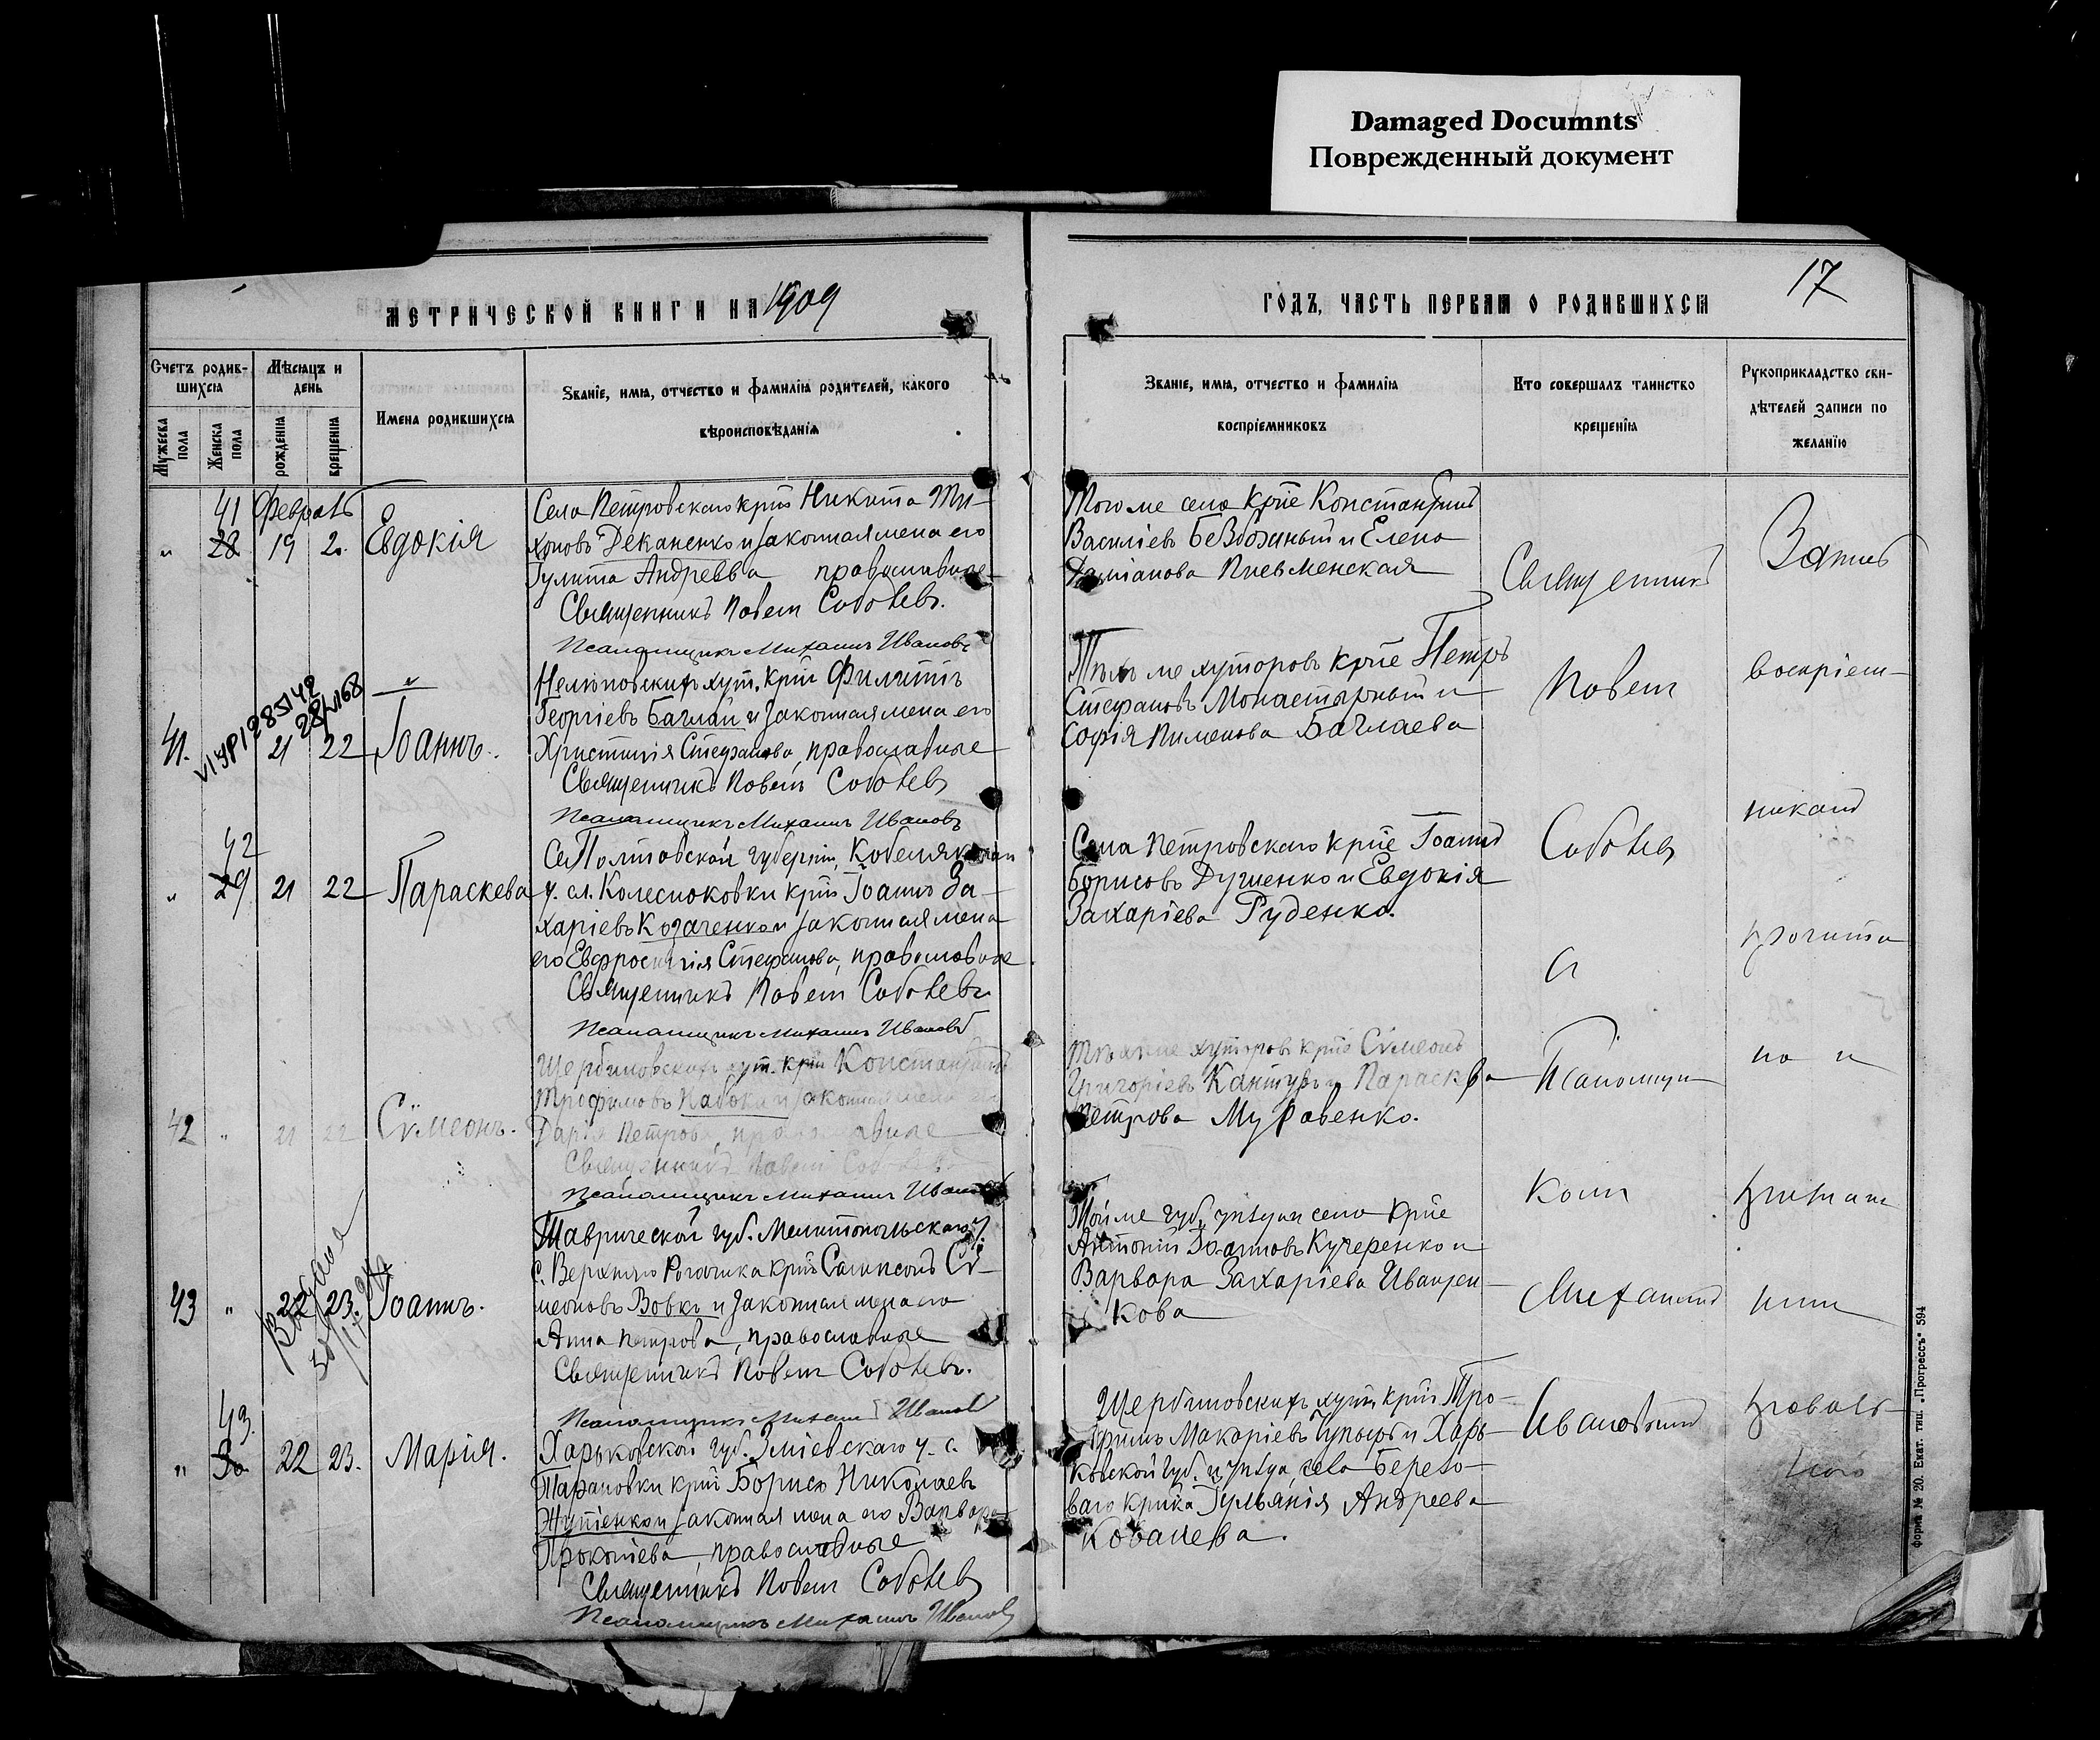 Damaged Documnts
Поврежденный документ
МЕТРИЧЕСКОЙ КНИГИ НА 1909
ГОДЪ, ЧАСТЬ ПЕРВАЯ О РОДИВШИХСЯ
17
Счетъ родив-
шихся
Мужеска пола
Женска пола
Мѣсяцъ и
день
рожденія
крещенія
Имена родившихся
Званіе, имя, отчество и фамилія родителей, какого
вѣроисповѣданія
Званіе, имя, отчество и фамилія
воспріемниковъ
Кто совершалъ таинство
крещенія
Рукоприкладство сви-
дѣтелей записи по
желанію
41 Февраль
" 28 19 20. Евдокія
Села Петровскаго крнъ Никита Ти-
хоновъ Деканенко и законная жена его
Іулита Андреева православные
Священникъ Павелъ Соболевъ.
Псаломщикъ Михаилъ Ивановъ
Того же села крне Константинъ
Василіевъ Безбожный и Елена
Письменская
41. 21 22 Іоаннъ.
хут. крнъ Филиппъ
Георгіевъ Баглай и законная жена его
Христинія Стефанова, православные
Священникъ Павелъ Соболевъ
Псаломщикъ Михаилъ Ивановъ
Тѣхъ же хуторовъ крне Петръ
Стефановъ Монастырный и
Софія Пименова Баглаева
42
" 29 21 22 Параскева
Полтавской губерніи, Кобелякскаго
у. сл. Колесниковки крнъ Іоаннъ За-
харіевъ Козаченко и законная жена
его Евфросинія Стефанова, православные
Священникъ Павелъ Соболевъ
Псаломщикъ Михаилъ Ивановъ
Села Петровскаго крне Іоаннъ
Борисовъ Душенко и Евдокія
Захаріева Руденко.
42 " 21 22 Сѵмеонъ.
Щербиновскихъ хут. крнъ Константинъ
Трофимовъ Набока и законная жена его
Дарія Петрова, православные
Священникъ Павелъ Соболевъ
Псаломщикъ Михаилъ Ивановъ
хуторовъ крне Сѵмеонъ
Григоріевъ Кантуръ и Параскева
Петрова Муравенко.
43 " 22 23. Іоаннъ.
Таврической губ. Мелитопольскаго у.
с. Верхняго Рогачика крнъ Сампсонъ Сѵ-
меоновъ Вовкъ и законная жена его
Анна Петрова, православные
Священникъ Павелъ Соболевъ.
Псаломщикъ Михаилъ Ивановъ
Той же губ. уѣзда и села крне
Антоній Іоанновъ Кучеренко и
Варвара Захаріева Иванчен-
кова
43.
" 30 22 23. Марія.
Харьковской губ. Зміевскаго у. с.
Тарановки крнъ Борисъ Николаевъ
и законная жена его Варвара
Прокопіева, православные
Священникъ Павелъ Соболевъ
Псаломщикъ Михаилъ Ивановъ
Щербиновскихъ хут. крнъ Тро-
фимъ Макаріевъ Чупыръ и Харь-
ковской губ. и уѣзда, села Березо-
ваго крнка Іуліанія Андреева
Ковалева.
Священникъ
Павелъ
Соболевъ
съ
Псаломщи-
комъ
Михаиломъ
Ивановымъ
воспріем-
никами
форма № 20. Екат. тип. „Прогрессъ“ 594